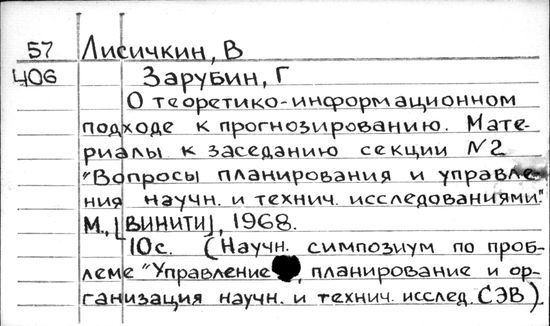 57 Лисичкин, В
406 Зарубин, Г
О теоретико-информационном
подходе к прогнозированию. Мате-
риалы к заседанию секции №2
"Вопросы планирования и управле-
ния научн. и технич. исследованиями."
М., [ВИНИТИ], 1968.
10с. (Научн. симпозиум по проб-
леме "Управление, планирование и ор-
ганизация научн. и технич. исслед. СЭВ)